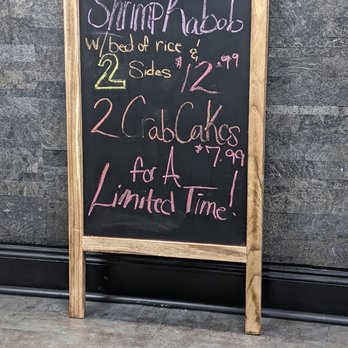 Shrimp Kabob
w/ bed of rice &
2 Sides $12.99
2 Crab Cakes
$7.99
for A
Limited Time!